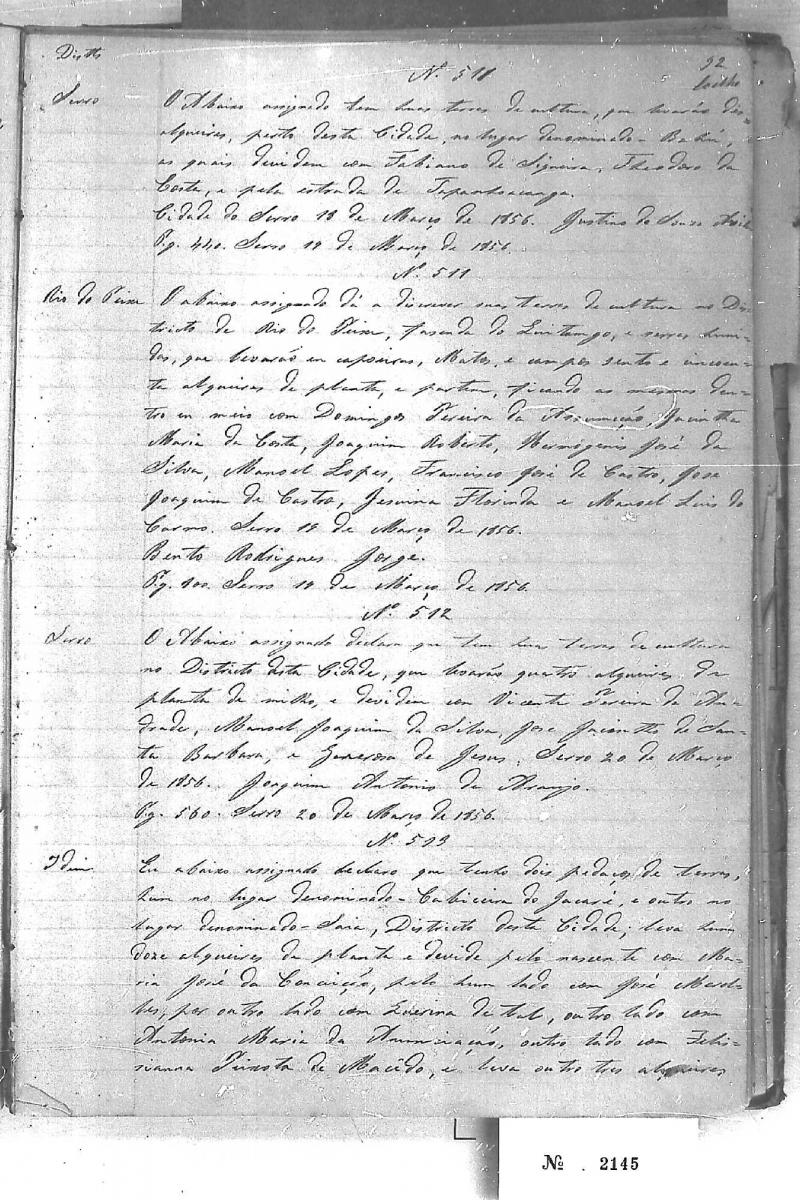 Distto
92
Coelho
Nº 510
Serro
O Abaixo assignado tem huas terras de cultura, que levarão des
alqueires, perto desta Cidade, no lugar denominado - Bahú,
as quais devidem com Fabiano de Siqueira, Theodoro da
Costa, e pela estrada de Tapanhoacanga.
Cidade do Serro 18 de Março de 1856. Justino de Souza
Pg. 440. Serro 19 de Março de 1856.
Nº 511
Rio do Peixe
O abaixo assignado dá a discrever suas terras de cultura no Dis
tricto do Rio do Peixe, fasenda do e serras
das, que levarão em capoeiras, Matos, e campos sento e incoen
ta alqueires de planta, e partem, ficando as mesmas den
tro em meio com Domingos Pereira da Assumção, Jacintha
Maria da Costa, Joaquim Roberto, Hermigenis José da
Silva, Manoel Lopes, Francisco José de Castro, Jose
Joaquim de Castro, Jesuina Florinda e Manoel Luis do
Carmo. Serro 19 de Março de 1856.
Bento Rodrigues Jorge.
Pg. 900. Serro 19 de Março de 1856.
Nº 512
Serro
O Abaixo assignado declara que tem huas terras de cultura
no Districto desta Cidade, que levarão quatro alqueires de
planta de milho, e devidem com Vicente Pereira de An
drade, Manoel Joaquim da Silva, Jose Jacintho de San
ta Barbara, e Generosa de Jesus. Serro 20 de Março
de 1856. Joaquim Antonio de Araujo.
Pg. 560. Serro 20 de Março de 1856.
Nº 513
Idem
Eu abaixo assignado declaro que tenho dois pedaços de terras,
hum no lugar denominado - Cabiceira do Jacaré, e outro no
lugar denominado - Saia, Districto desta Cidade, leva hum
doze alqueires de planta e devide pelo nascente com Ma
ria José da Conceição, pelo hum lado com José Meirel
les, por outro lado com de tal, outro lado com
Antonia Maria da Anunciação, outro lado com Felis
sianna Peixota de Macêdo, e leva outro tres alqueires
Nº . 2145